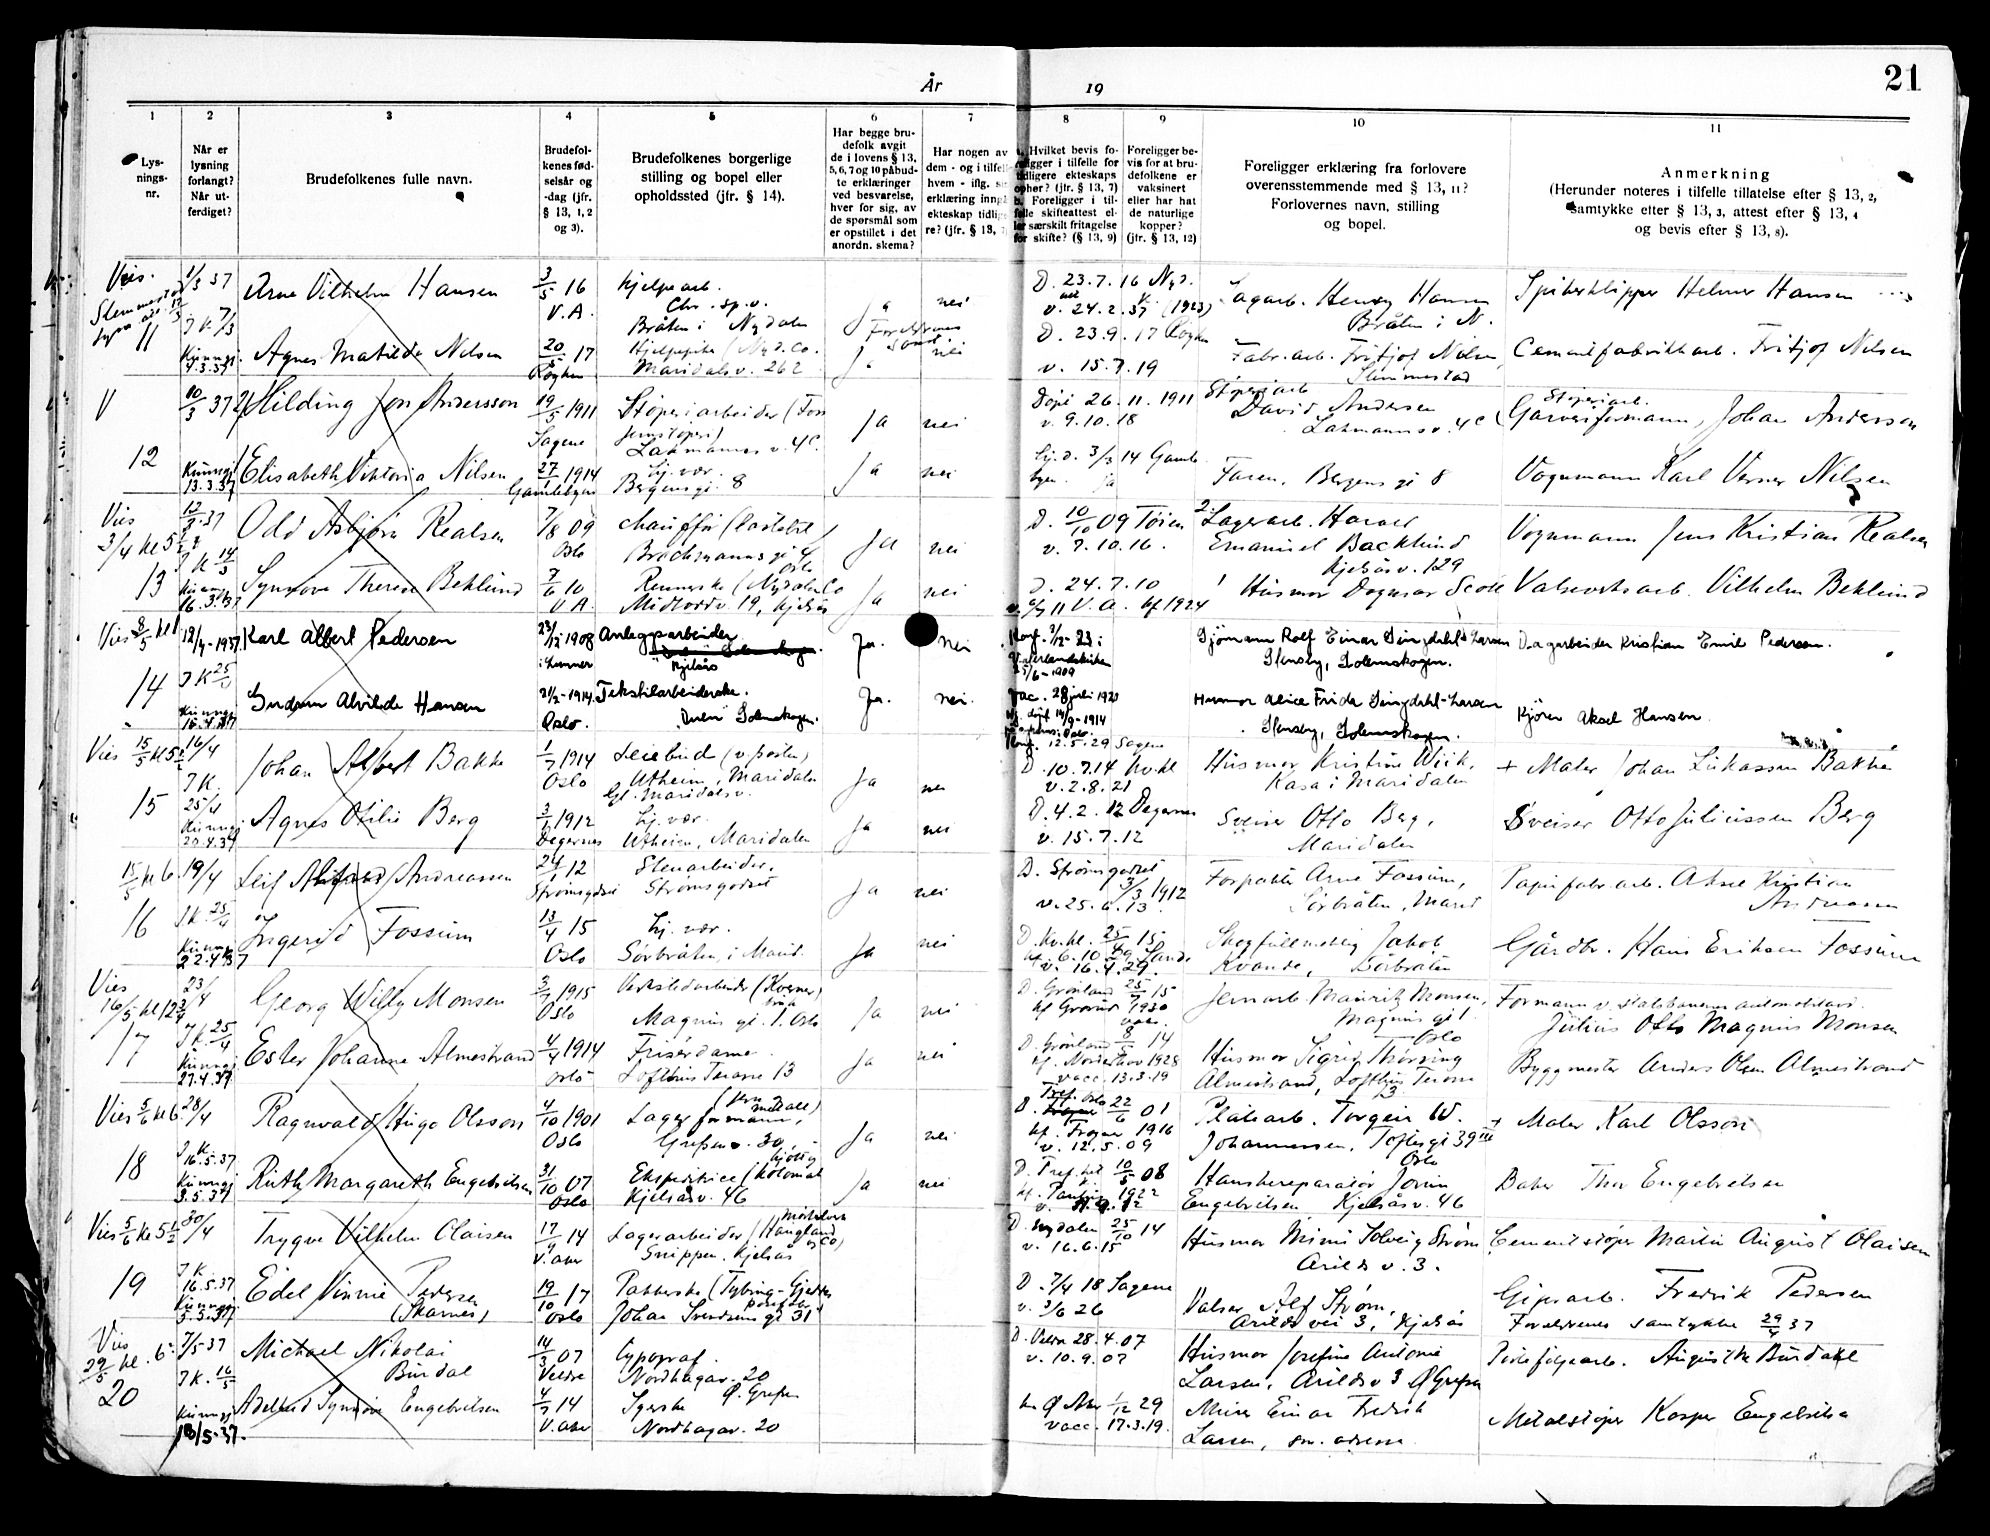 År 19
21
1
2
3
4
5
6
7
8
9
10
11
Lys-
nings-
nr.
Når er
lysning
forlangt?
Når ut-
ferdiget?
Brudefolkenes fulle navn.
Brudefol-
kenes fød-
selsår og
-dag (jfr.
§ 13, 1, 2
og 3).
Brudefolkenes borgerlige
stilling og bopel eller
opholdssted (jfr. § 14).
Har begge bru-
defolk avgit
de i lovens § 13,
5, 6, 7 og 10 påbud-
te erklæringer
ved besvarelse,
hver for sig, av
de spørsmål som
er opstillet i det
anordn. skema?
Har nogen av
dem - og i tilfel
hvem - iflg.
erklæring inng
ekteskap tidlig
re? (jfr. § 13,
Hvilket bevis fo-
religger i tilfelle for
tidligere ekteskaps
ophør? (jfr. § 13, 7)
b. Foreligger i til-
felle skifteattest el-
ler særskilt fritagelse
for skifte? (§ 13, 9)
Foreligger be-
vis for at bru-
defolkene er
vaksinert
eller har hat
de naturlige
kopper?
(jfr. § 13, 12)
Foreligger erklæring fra forlovere
overensstemmende med § 13, 11?
Forlovernes navn, stilling
og bopel.
Anmerkning
(Herunder noteres i tilfelle tillatelse efter § 13, 2,
samtykke etter § 13, 3, attest efter § 13, 4
og bevis efter § 13, 8).
Vies.
1/3 37
Arne Vilhelm Hansen
3/5 16
V.A.
Hjelpearb.
Chr. sp.v.
Bråten i Nydalen
Ja
nei
D. 23.7.16 Nyd.
v. 24.2.37 (1923)
Lagarb. Henry Hansen
Bråten i N.
Spikerklipper Helmer Hansen
11
J K 7/3
Kunngj.
4.3.37
Agnes Matilde Nilsen
20/5 17
Røyken
Hjelpepike (Nyd. Co.
Maridalsv. 262
Ja
nei
D. 23.9.17 Røyken
v. 15.7.19
Fabr.arb. Fritjof Nilsen
Slemmestad
Cementfabrikkarb. Fritjof Nilsen
V
10/3 37
Hilding Jon Andersson
19/5 1911
Sagene
Støperiarbeider (Foss
Jernstøperi)
Lakmannsv. 4c
Ja
nei
Døpt 26.11.1911
v. 9.10.18
Støperiarb
David Andersen
Lakmannsv. 4c
Støperiarb.
Garveriformann, Johan Andersson
12
Kunngj
13.3.37
Elisabeth Viktoria Nilsen
27/1 1914
Gamlebyen
Hj. vær.
Bergensgt. 8
Ja
nei
Hj.d. 3/3 14 Gamle
byen. ja
Faren, Bergens gt 8
Vognmann Karl Verner Nilsen
Vies
3/4 kl 5 1/2
12/3 37
Odd Asbjørn Realsen
7/8 09
Oslo
Chauffør (lastebil)
Brochmannsgt 4
Oslo
Ja
nei
D. 10/10 09 Tøien
v. 7.10.16.
Lagerarb. Harald
Emanuel Backlund
Kjelsåsv. 129
Vognmann Jens Kristian Realsen
13
J K 14/3
Kunngj
16.3.37
Synnøve Therese Beklund
7/6 10
V A.
Renneske (Nydalen Co
Midtoddv. 19, Kjelsås
Ja
nei
D. 24.7.10
V.A. kf 1924
Husmor Dagmar Scott
Valseverksarb. Vilhelm Beklund
Vies 8/5 kl 1
12/4-1937
Karl Albert Pedersen
23/12 1908
i Lunner
Anlegsarbeider
Kjelsås
Ja.
nei
Konf. 2/12-23 i
25/6-1909
Sjömann Rolf Einar Dingdahl-Larsen
Stensby, Solemskogen.
Dagarbeider Kristian Emil Pedersen.
14
J K 25/4
Kunngj
15.4.37
Gudrun Alvilde Hansen
21/2-1914
Oslo.
Tekstilarbeiderske.
Solemskogen.
Ja.
nei.
Vac. 28 juli 1920
døpt 14/9-1914
Konf. 12.5.29 Sagene
Husmor Alice Frida Dingdahl-Larsen
Stensby, Solemskogen.
Kjörer Aksel Hansen.
Vies 15/5 kl 5 1/2
16/4
Johan Albert Bakke
1/7 1914
Oslo
Leiebud (v/posten)
Utheim, Maridalen
Gl. Maridalsv.
Ja
nei
D. 10.7.14 Kv.kl
v. 2.8.21
Husmor Kristine Wiik,
Kasa i Maridalen
+ Maler Johan Lukassen Bakke
15
J K.
25/4
Kunngj
20.4.37
Agnes Otilie Berg
3/1 1912
Degernes
Hj. vær.
Utheim, Maridalen
Ja
nei
D. 4.2.12 Degernes
v. 15.7.12
Sveiser Otto Berg,
Maridalen
Sveiser Otto Juliussen Berg
15/5 kl 6.
19/4
Leif Andreassen
24/1 12
Strømsgodset
Stenarbeider.
Strømsgodset
Ja
nei
D. Strømsgodset
3/3 1912
v. 25.6.13.
Forpakter Arne Fossum,
Sørbråten, Marid
Papirfabr.arb. Aksel Kristian
Andreassen
16
J K. 25/4
Kunngj
22.4.37
Ingerid Fossum
13/4 15
Oslo
Hj. vær.
Sørbråten, i Marid.
Ja
nei
D. Kv.kl. 25/4 15
kf. 6.10.29 Sande
v. 16.4.29.
Skogfullmektig Jakob
Kvande, Sørbråten
Gårdbr. Hans Eriksen Fossum
Vies
16/5 kl 12 3/4
23/4
Georg Willy Monsen
3/7 1915
Oslo
Verkstedarbeider (Kværner
bruk
Magnus gt. 1. Oslo
Ja
nei
D. Grønland 25/7 15
kf Grorud 1930
vac.
Jernarb. Mauritz Monsen,
Magnus gt 1
Oslo
Formann v. statsbanenes automobilavd
Julius Otto Magnus Monsen
17
J K. 25/4
Kunngj
27.4.37
Ester Johanne Almestrand
4/4 1914
Oslo
Frisørdame.
Lofthus Terasse 13
Ja
nei
D. Grønland 8/5 14
kf. Nordstrand 1928
vacc. 13.3.19
Husmor Sigrid Thorving
Almestrand, Lofthus Terasse
13.
Byggmester Anders Olsen Almestrand
Vies 5/6 kl 6
28/4
Ragnvald Hugo Olsson
4/10 1901
Oslo
(Jern &
metall)
Lagerformann,
Grefsenv. 30,
Ja
nei
Tref. Oslo
D. 22/6 01
kf. Frogner 1916
v. 12.5.09
Platearb. Torgeir W.
Johannessen, Toftesgt 39
Oslo
+ Maler Karl Olsson
18
J K.
16.5.37
Kunngj
3.5.37
Ruth Margareth Engebretsen
31/10 07
Oslo
Ekspeditrice (kolonial
Kjelsåsv. 46
Ja
nei
D. Tref.ket 10/5 08
kf. Paulus 1922
Hanskereparatør Jorun
Engebretsen Kjelsåsv. 46
Baker Thor Engebretsen
Vies 5/6 kl 5 1/2
30/4
Trygve Vilhelm Olaisen
17/9 14
V. aker
Lagerarbeider (Haugland
& Co)
Snippen, Kjelsås
D. Nydalen 25/10 14
v. 16.6.15
Husmor Mimi Solveig Strøm
Arildsv. 3.
Cementstøper Martin August Olaisen
19
J K.
16.5.37
Kunngj
5.5.37
Edel Vinnie Pedersen
(Skarnes)
19/10 17
Oslo
Pakkerske (Tybring-Gjedde
Johan Svendsens gt 31
D. 7/4 18 Sagene
v. 3/6 26
Valser Alf Strøm,
Arildsvei 3, Kjelsås
Gipsarb. Fredrik Pedersen
Foreldrenes samtykke 29/4 37
Vies
29/5 kl. 6
7/5-37
Michael Nikolai
Burdal
14/3 07
Veldre
Typograf.
Nordhagav. 20
Ø. Grefsen
D. Veldre 28.4.07
v. 10.9.07
Husmor Josefine Antonie
Larsen, Arildsv 3 Ø Grefsen
August M Burdahl
20
J K. 16/5
Kunngj
13/5-37.
Adelheid Synnøve Engebretsen
4/7 14
V. aker
Syerske
Nordhagav. 20
kn Ø Aker 1/12 29
vacc. 17.3.19.
Murer Einar Fredrik
Larsen, sm. adresse.
Metalstøper Kasper Engebretsen